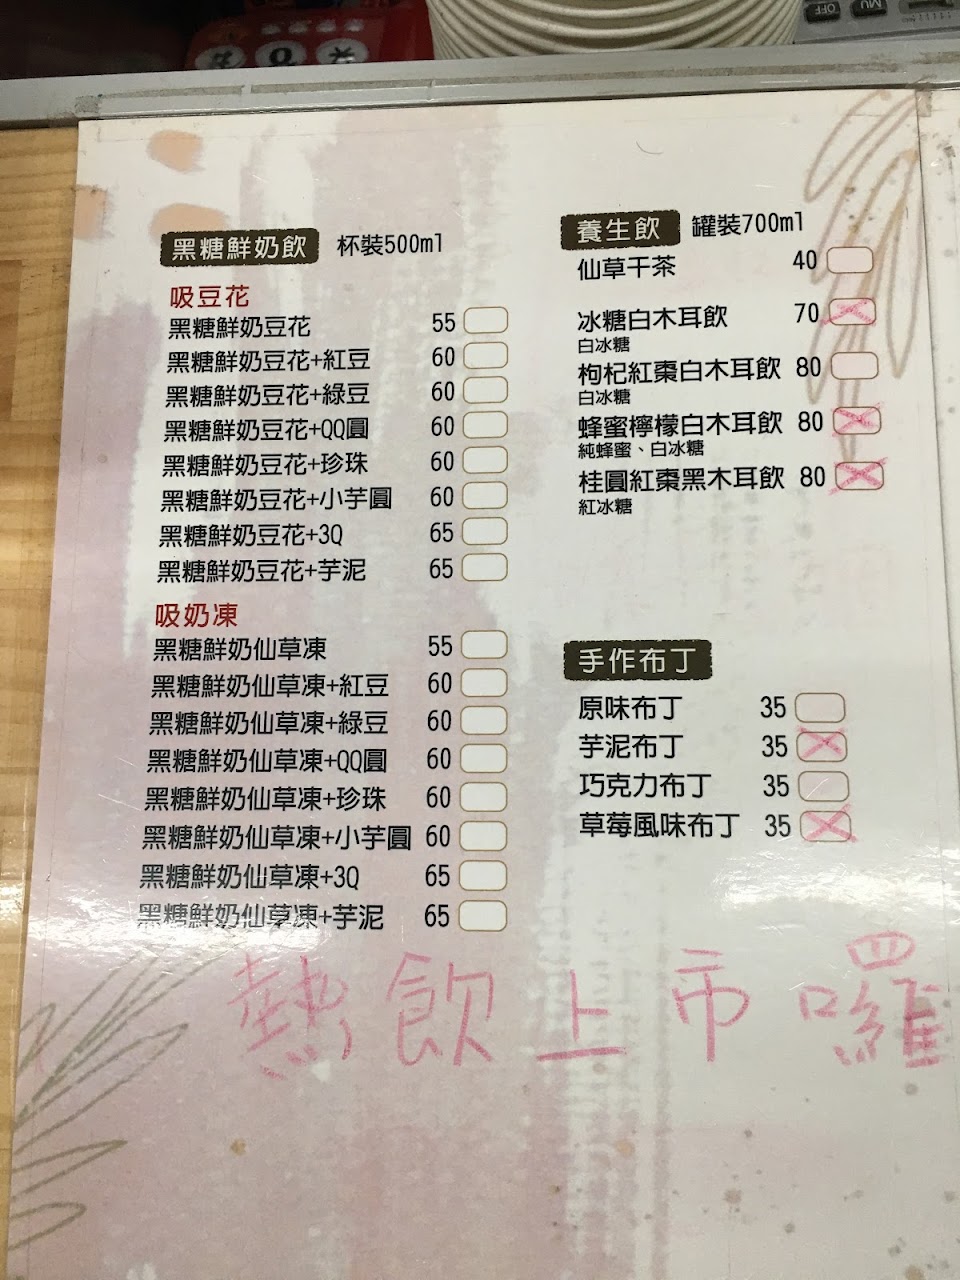 OFF MU
黑糖鮮奶飲 杯裝500ml
吸豆花
黑糖鮮奶豆花 55
黑糖鮮奶豆花+紅豆 60
黑糖鮮奶豆花+綠豆 60
黑糖鮮奶豆花+QQ圓 60
黑糖鮮奶豆花+珍珠 60
黑糖鮮奶豆花+小芋圓 60
黑糖鮮奶豆花+3Q 65
黑糖鮮奶豆花+芋泥 65
吸奶凍
黑糖鮮奶仙草凍 55
黑糖鮮奶仙草凍+紅豆 60
黑糖鮮奶仙草凍+綠豆 60
黑糖鮮奶仙草凍+QQ圓 60
黑糖鮮奶仙草凍+珍珠 60
黑糖鮮奶仙草凍+小芋圓 60
黑糖鮮奶仙草凍+3Q 65
黑糖鮮奶仙草凍+芋泥 65
養生飲 罐裝700ml
仙草干茶 40
冰糖白木耳飲 70
白冰糖
枸杞紅棗白木耳飲 80
白冰糖
蜂蜜檸檬白木耳飲 80
純蜂蜜、白冰糖
桂圓紅棗黑木耳飲 80
紅冰糖
手作布丁
原味布丁 35
芋泥布丁 35
巧克力布丁 35
草莓風味布丁 35
熱飲上市囉